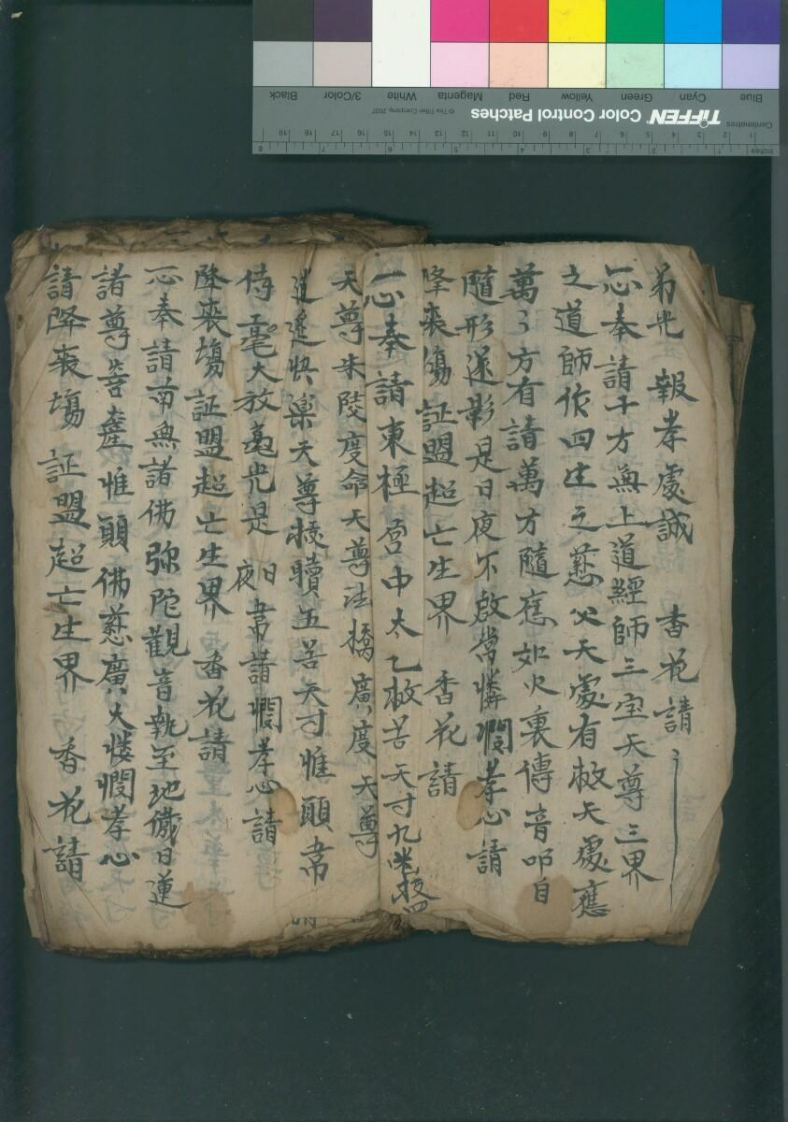 弟光 報孝處誠 香花請
一心奉請十方無上道經師三宝天尊三界
之道師作四生之慈父天處有救天處應
萬〻方有請萬方隨應如火裏傳音叩自
隨形逐影是日夜不啟當憐憫孝心請
降來塲証盟超亡生界 香花請
一心奉請東極宫中太乙救苦天寸九 拔四
天尊朱陵度命天尊法橋廣度天尊
逍遥快楽天尊 贖五苦天寸惟願常
侍 毫大放 光是日夜常請憫孝心請
降來塲証盟超亡生界 香花請
一心奉請南無諸佛弥陀觀音執至地儀日蓮
諸尊菩薩惟願佛慈廣大憐憫孝心
請降來塲 証盟超亡生界 香花請
Black
3/Color
White
Magenta
Red
Yellow
Green
Cyan
Blue
© The Tiffen Company, 2007
TIFFEN® Color Control Patches
Centimetres
Inches